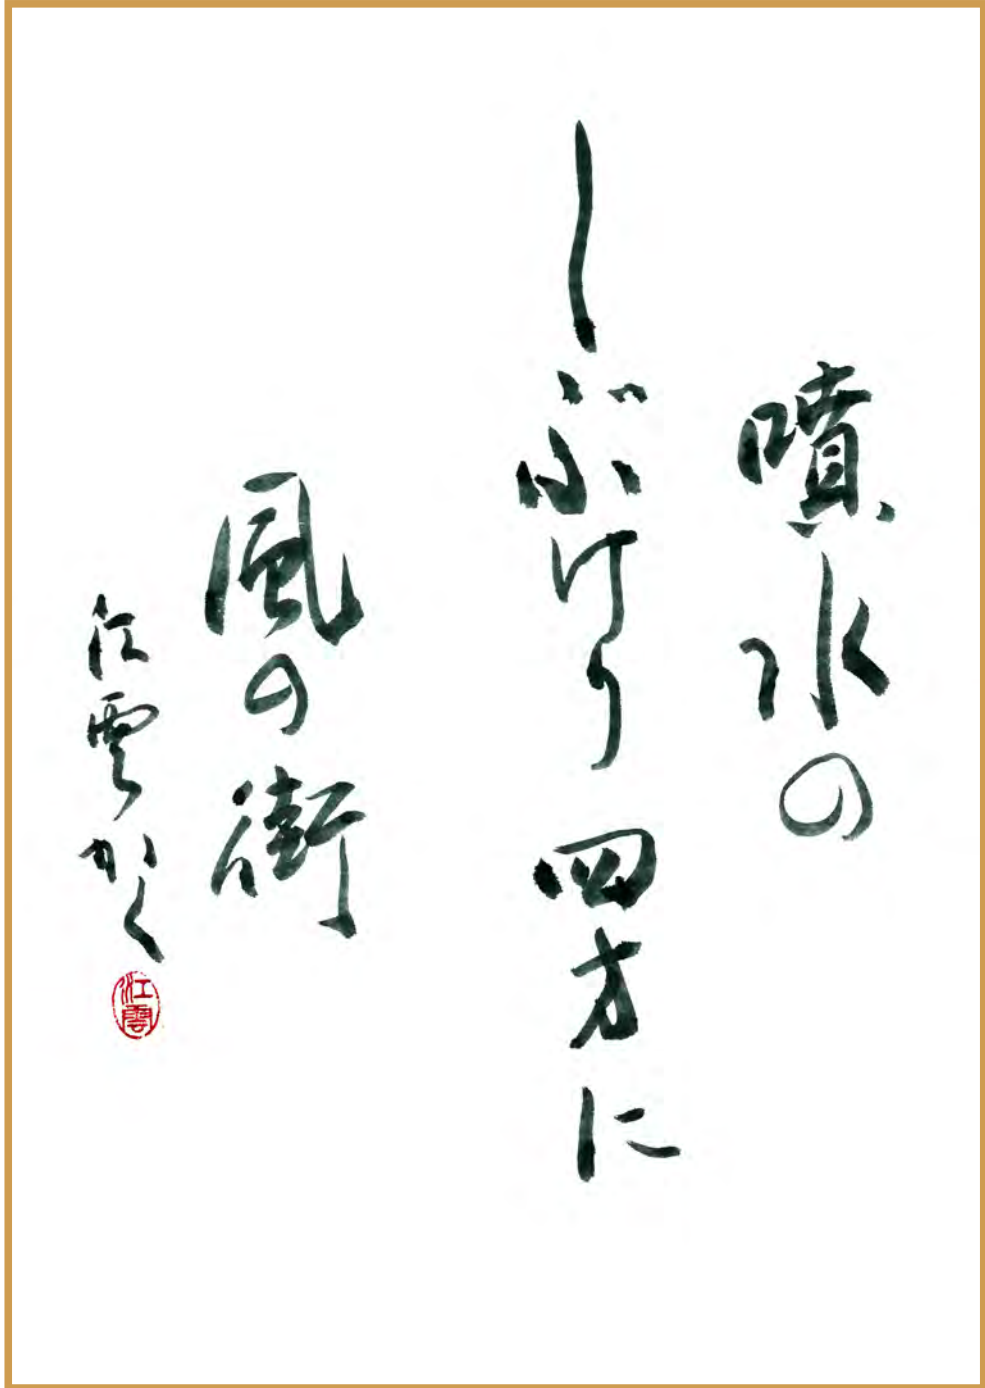 噴水の
しぶけり四方に
風の街
江雲かく
江雲